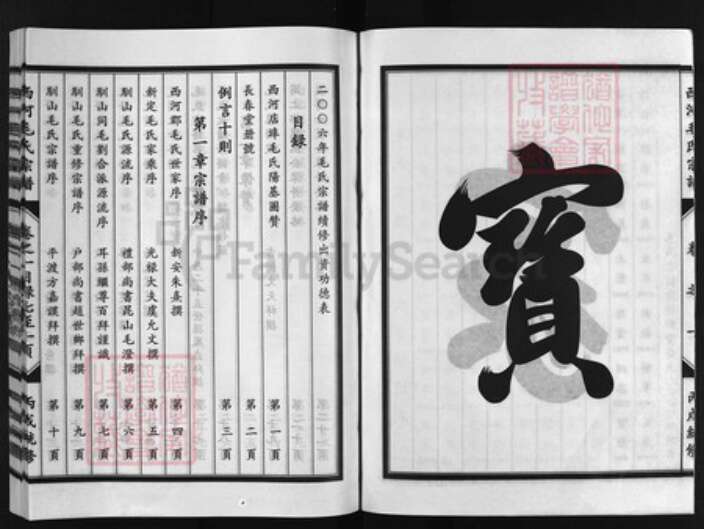 寶
西河毛氏宗譜
卷之一
丙戌續修
二〇〇六年毛氏宗譜續修出資功德表
目録
西河店埠毛氏陽基圖贊 第一頁
長春堂册號 第二頁
例言十則 第三頁
第一章宗譜序
西河郡毛氏世家序 新安朱熹撰 第四頁
新定毛氏家乘序 光禄大夫虞允文撰 第五頁
馴山毛氏源流序 禮部尚書崑山毛澄撰 第六頁
馴山同毛劉合派源流序 耳孫繼尊百拜謹識 第七頁
馴山毛氏重修宗譜序 户部尚書趙世卿拜撰 第九頁
馴山毛氏宗譜序 平渡方嘉謨拜撰 第十頁
西河毛氏宗譜
卷之一
丙戌續修
FamilySearch